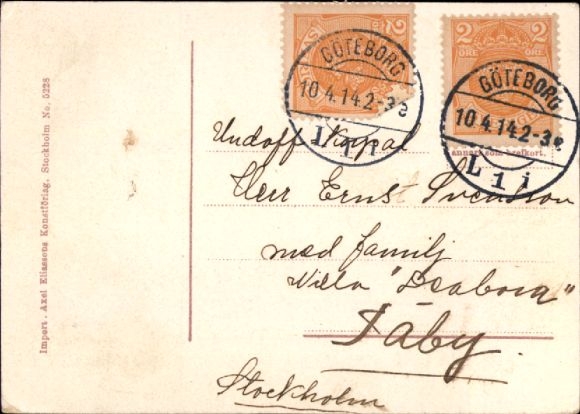 Import. Axel Eliassons Konstförlag, Stockholm No. 5228
2
2
ÖRE
ÖRE
2
GÖTEBORG
10.4.14 2-3 e
L 1 i
GÖTEBORG
10.4.14 2-3 e
L 1 i
som brefkort.
Herr Ernst Svensson
med familj
Villa
Täby
Stockholm